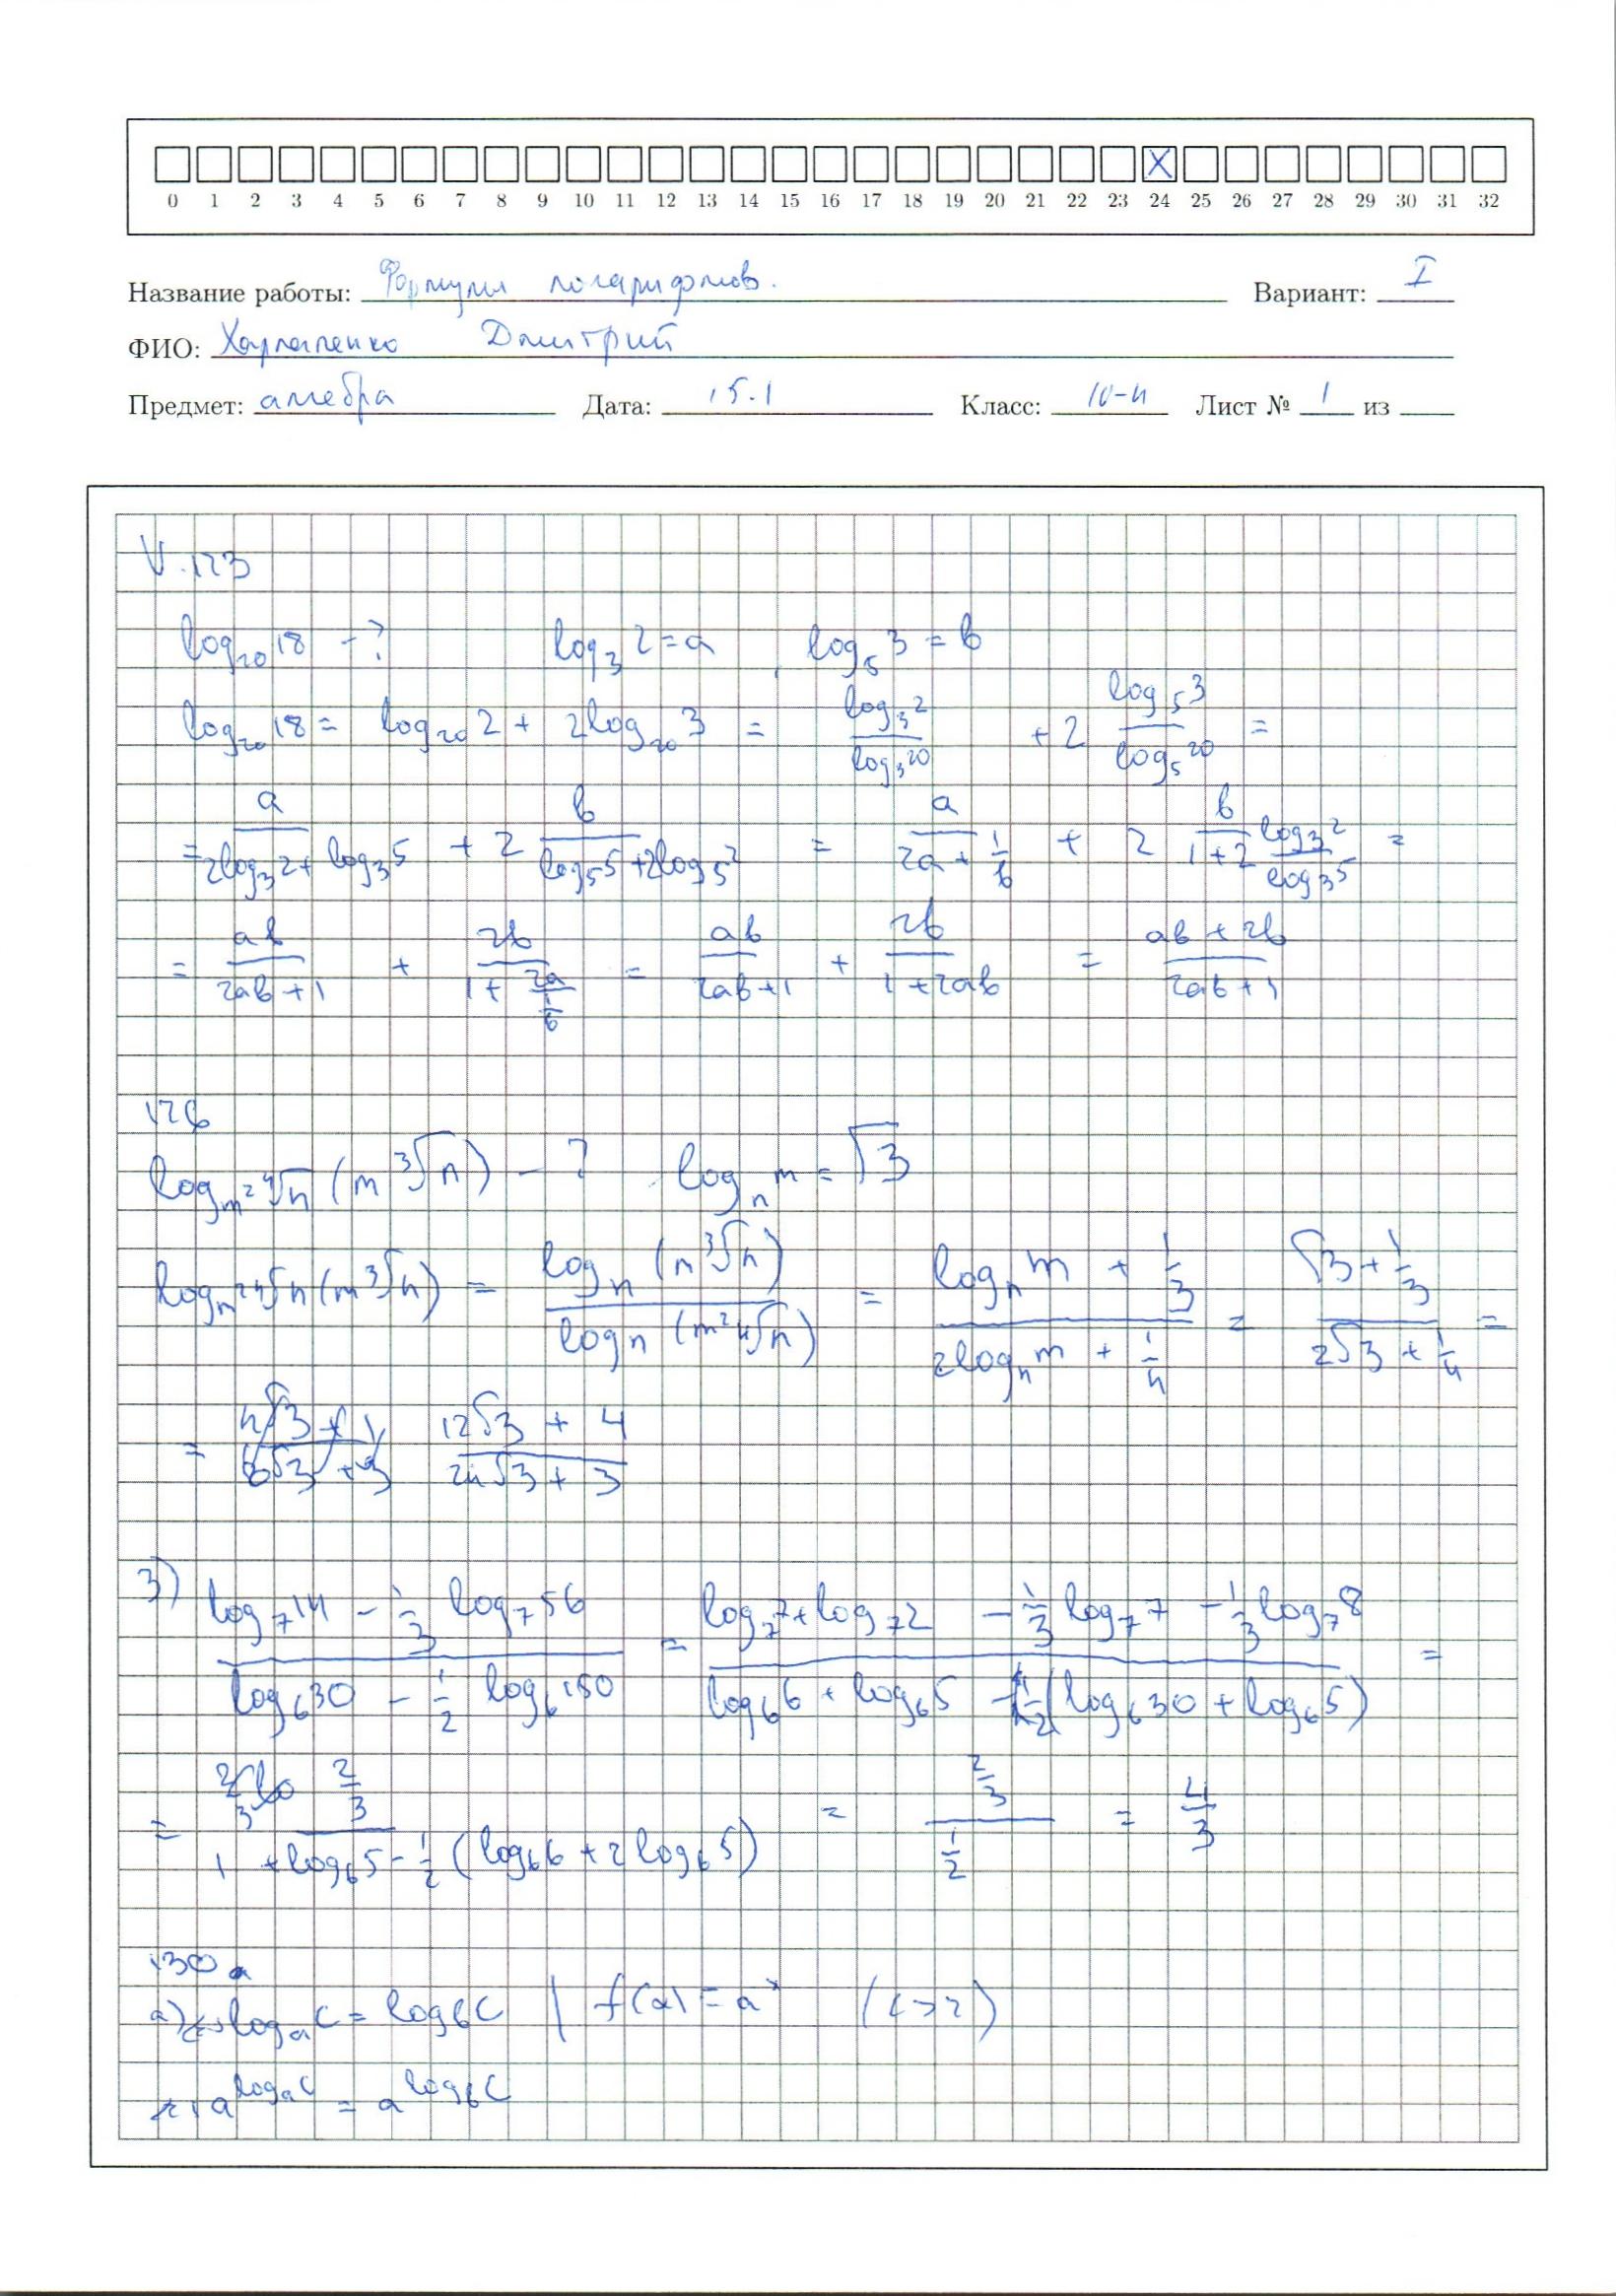 0 1 2 3 4 5 6 7 8 9 10 11 12 13 14 15 16 17 18 19 20 21 22 23 24 25 26 27 28 29 30 31 32
Название работы: Формулы логарифмов. Вариант: I
ФИО: Дмитрий
Предмет: алгебра Дата: 15.1 Класс: 10-4 Лист № 1 из
V.123
log₂₀18 - ? log₃2 = a, log₅3 = b
log₂₀18 = log₂₀2 + 2log₂₀3 = log₃2/log₃20 + 2 log₅3/log₅20 =
= a/(2log₃2 + log₃5) + 2 b/(log₅5 + 2log₅2) = a/(2a + 1/b) + 2 b/(1 + 2 log₃2/log₃5) =
= ab/(2ab + 1) + 2b/(1 + 2a/(1/b)) = ab/(2ab + 1) + 2b/(1 + 2ab) = (ab + 2b)/(2ab + 1)
126
log_{m²⁴√n} (m ³√n) - ? log_n m = √3
log_{m²⁴√n} (m ³√n) = log_n (m ³√n)/log_n (m² ⁴√n) = (log_n m + 1/3)/(2log_n m + 1/4) = (√3 + 1/3)/(2√3 + 1/4) =
= (12√3 + 4)/(24√3 + 3)
3) (log₇14 - 1/3 log₇56)/(log₆30 - 1/2 log₆150) = (log₇7 + log₇2 - 1/3 log₇7 - 1/3 log₇8)/(log₆6 + log₆5 - 1/2 (log₆30 + log₆5)) =
= (2/3)/(1 + log₆5 - 1/2 (log₆6 + 2log₆5)) = (2/3)/(1/2) = 4/3
130
a) log_a c = log_b c | f(x) = a^x
a^{log_a c} = a^{log_b c}